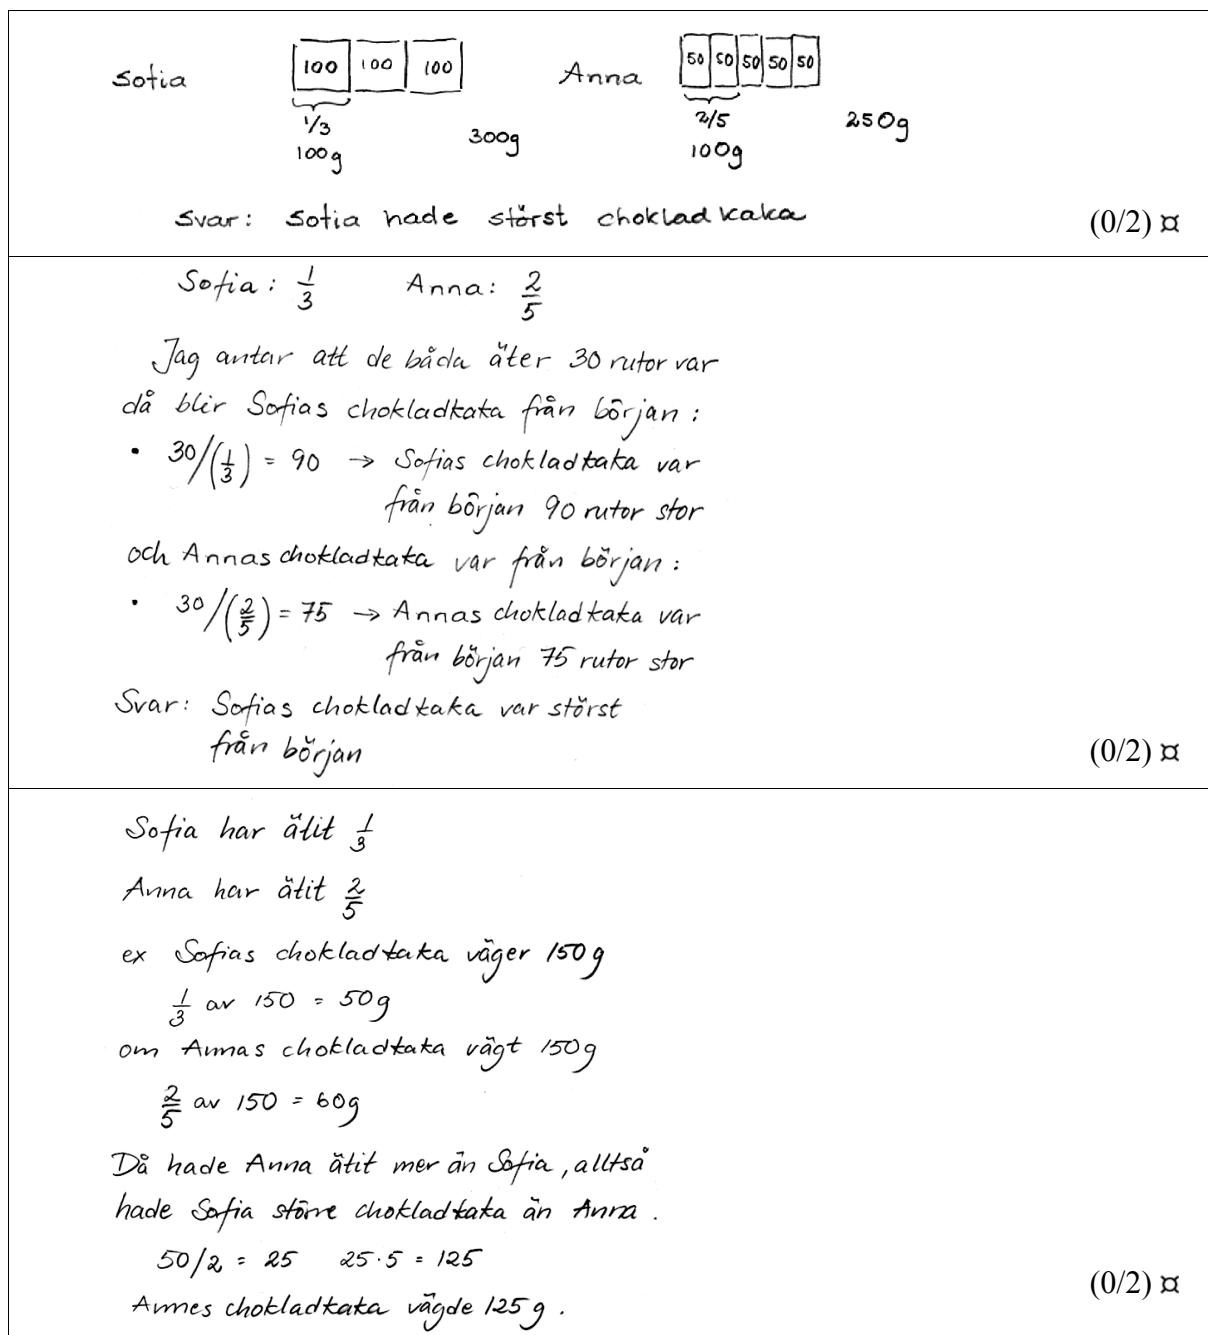 Sofia 100 100 100 Anna 50 50 50 50 50
1/3 300g 2/5 250g
100g 100g
Svar: Sofia hade störst chokladkaka (0/2) ¤
Sofia: 1/3 Anna: 2/5
Jag antar att de båda äter 30 rutor var
då blir Sofias chokladkaka från början:
• 30/(1/3) = 90 → Sofias chokladkaka var
från början 90 rutor stor
och Annas chokladkaka var från början:
• 30/(2/5) = 75 → Annas chokladkaka var
från början 75 rutor stor
Svar: Sofias chokladkaka var störst
från början (0/2) ¤
Sofia har ätit 1/3
Anna har ätit 2/5
ex Sofias chokladkaka väger 150g
1/3 av 150 = 50g
om Annas chokladkaka vägt 150g
2/5 av 150 = 60g
Då hade Anna ätit mer än Sofia, alltså
hade Sofia större chokladkaka än Anna.
50/2 = 25 25·5 = 125
Annes chokladkaka vägde 125g. (0/2) ¤